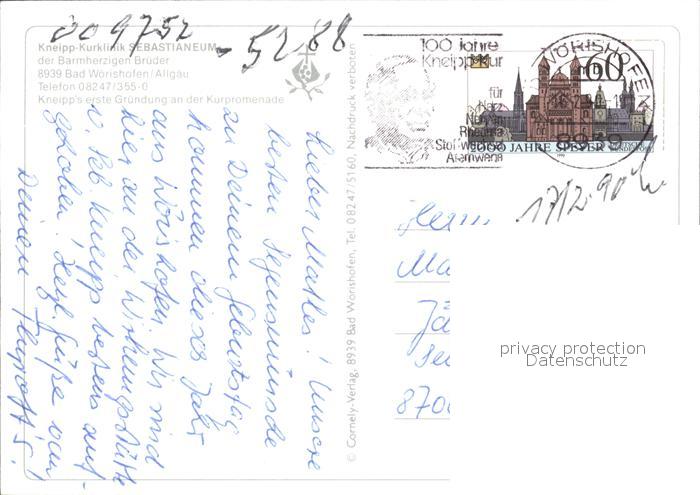 009752
- 5288
Kneipp-Kurklinik SEBASTIANEUM
der Barmherzigen Brüder
8939 Bad Wörishofen/Allgäu
Telefon 08247/355-0
Kneipp's erste Gründung an der Kurpromenade
Lieber Mathes! Unsere
besten Segenswünsche
zu Deinem Geburtstag
kommen dieses Jahr
aus Wörishofen. Wir sind
hier an der Wirkungsstätte
v. Seb. Kneipp bestens auf-
gehoben! Herzl. Grüße von
Deinen
© Cornely-Verlag, 8939 Bad Wörishofen, Tel. 08247/5160, Nachdruck verboten
100 Jahre
Kneipp-Kur
für
Herz
Nerven
Rheuma
Stoffwechsel
Atemwege
WÖRISHOFEN
8939
60
2000 JAHRE SPEYER
17/2.90
Herrn
Ma
870
privacy protection
Datenschutz